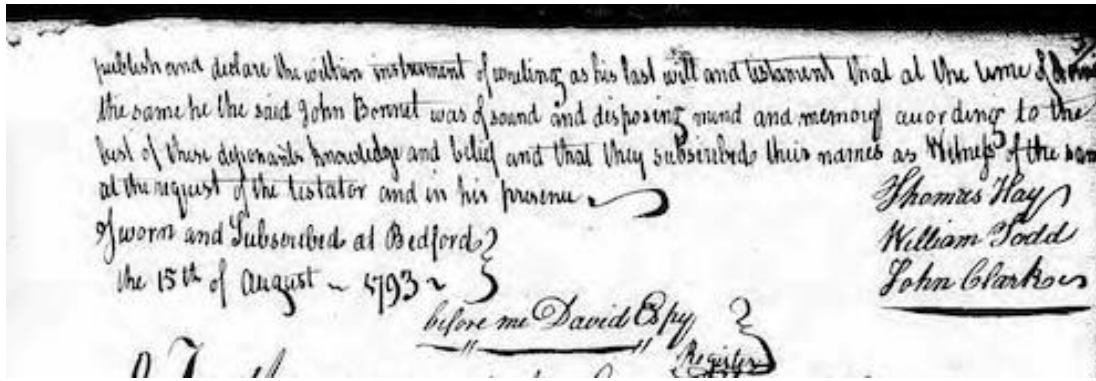 publish and declare the within instrument of writing as his last will and testament that at the time of doing
the same he the said John Bonnet was of sound and disposing mind and memory according to the
best of these deponants knowledge and belief and that they subscribed their names as Witness of the same
at the request of the testator and in his presence
Thomas Hay
Sworn and Subscribed at Bedford
William Todd
the 15th of August 1793
John Clark
before me David Espy
Register